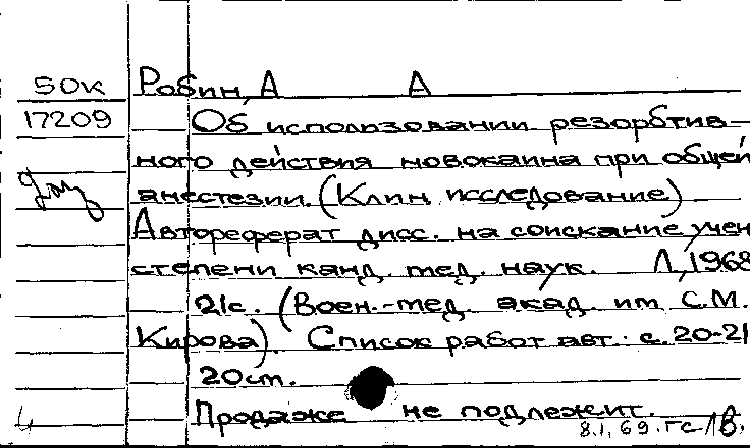 50к Робин, А А
17209 Об использовании резорбтив-
ного действия новокаина при общей
анестезии. (Клин. исследование)
Автореферат дисс. на соискание учен
степени канд. мед. наук. Л., 1968
21с. (Воен.-мед. акад. им С.М.
Кирова). Список работ авт.: с. 20-21
20см.
Продаже не подлежит.
4 8.1.69. гс 1в.